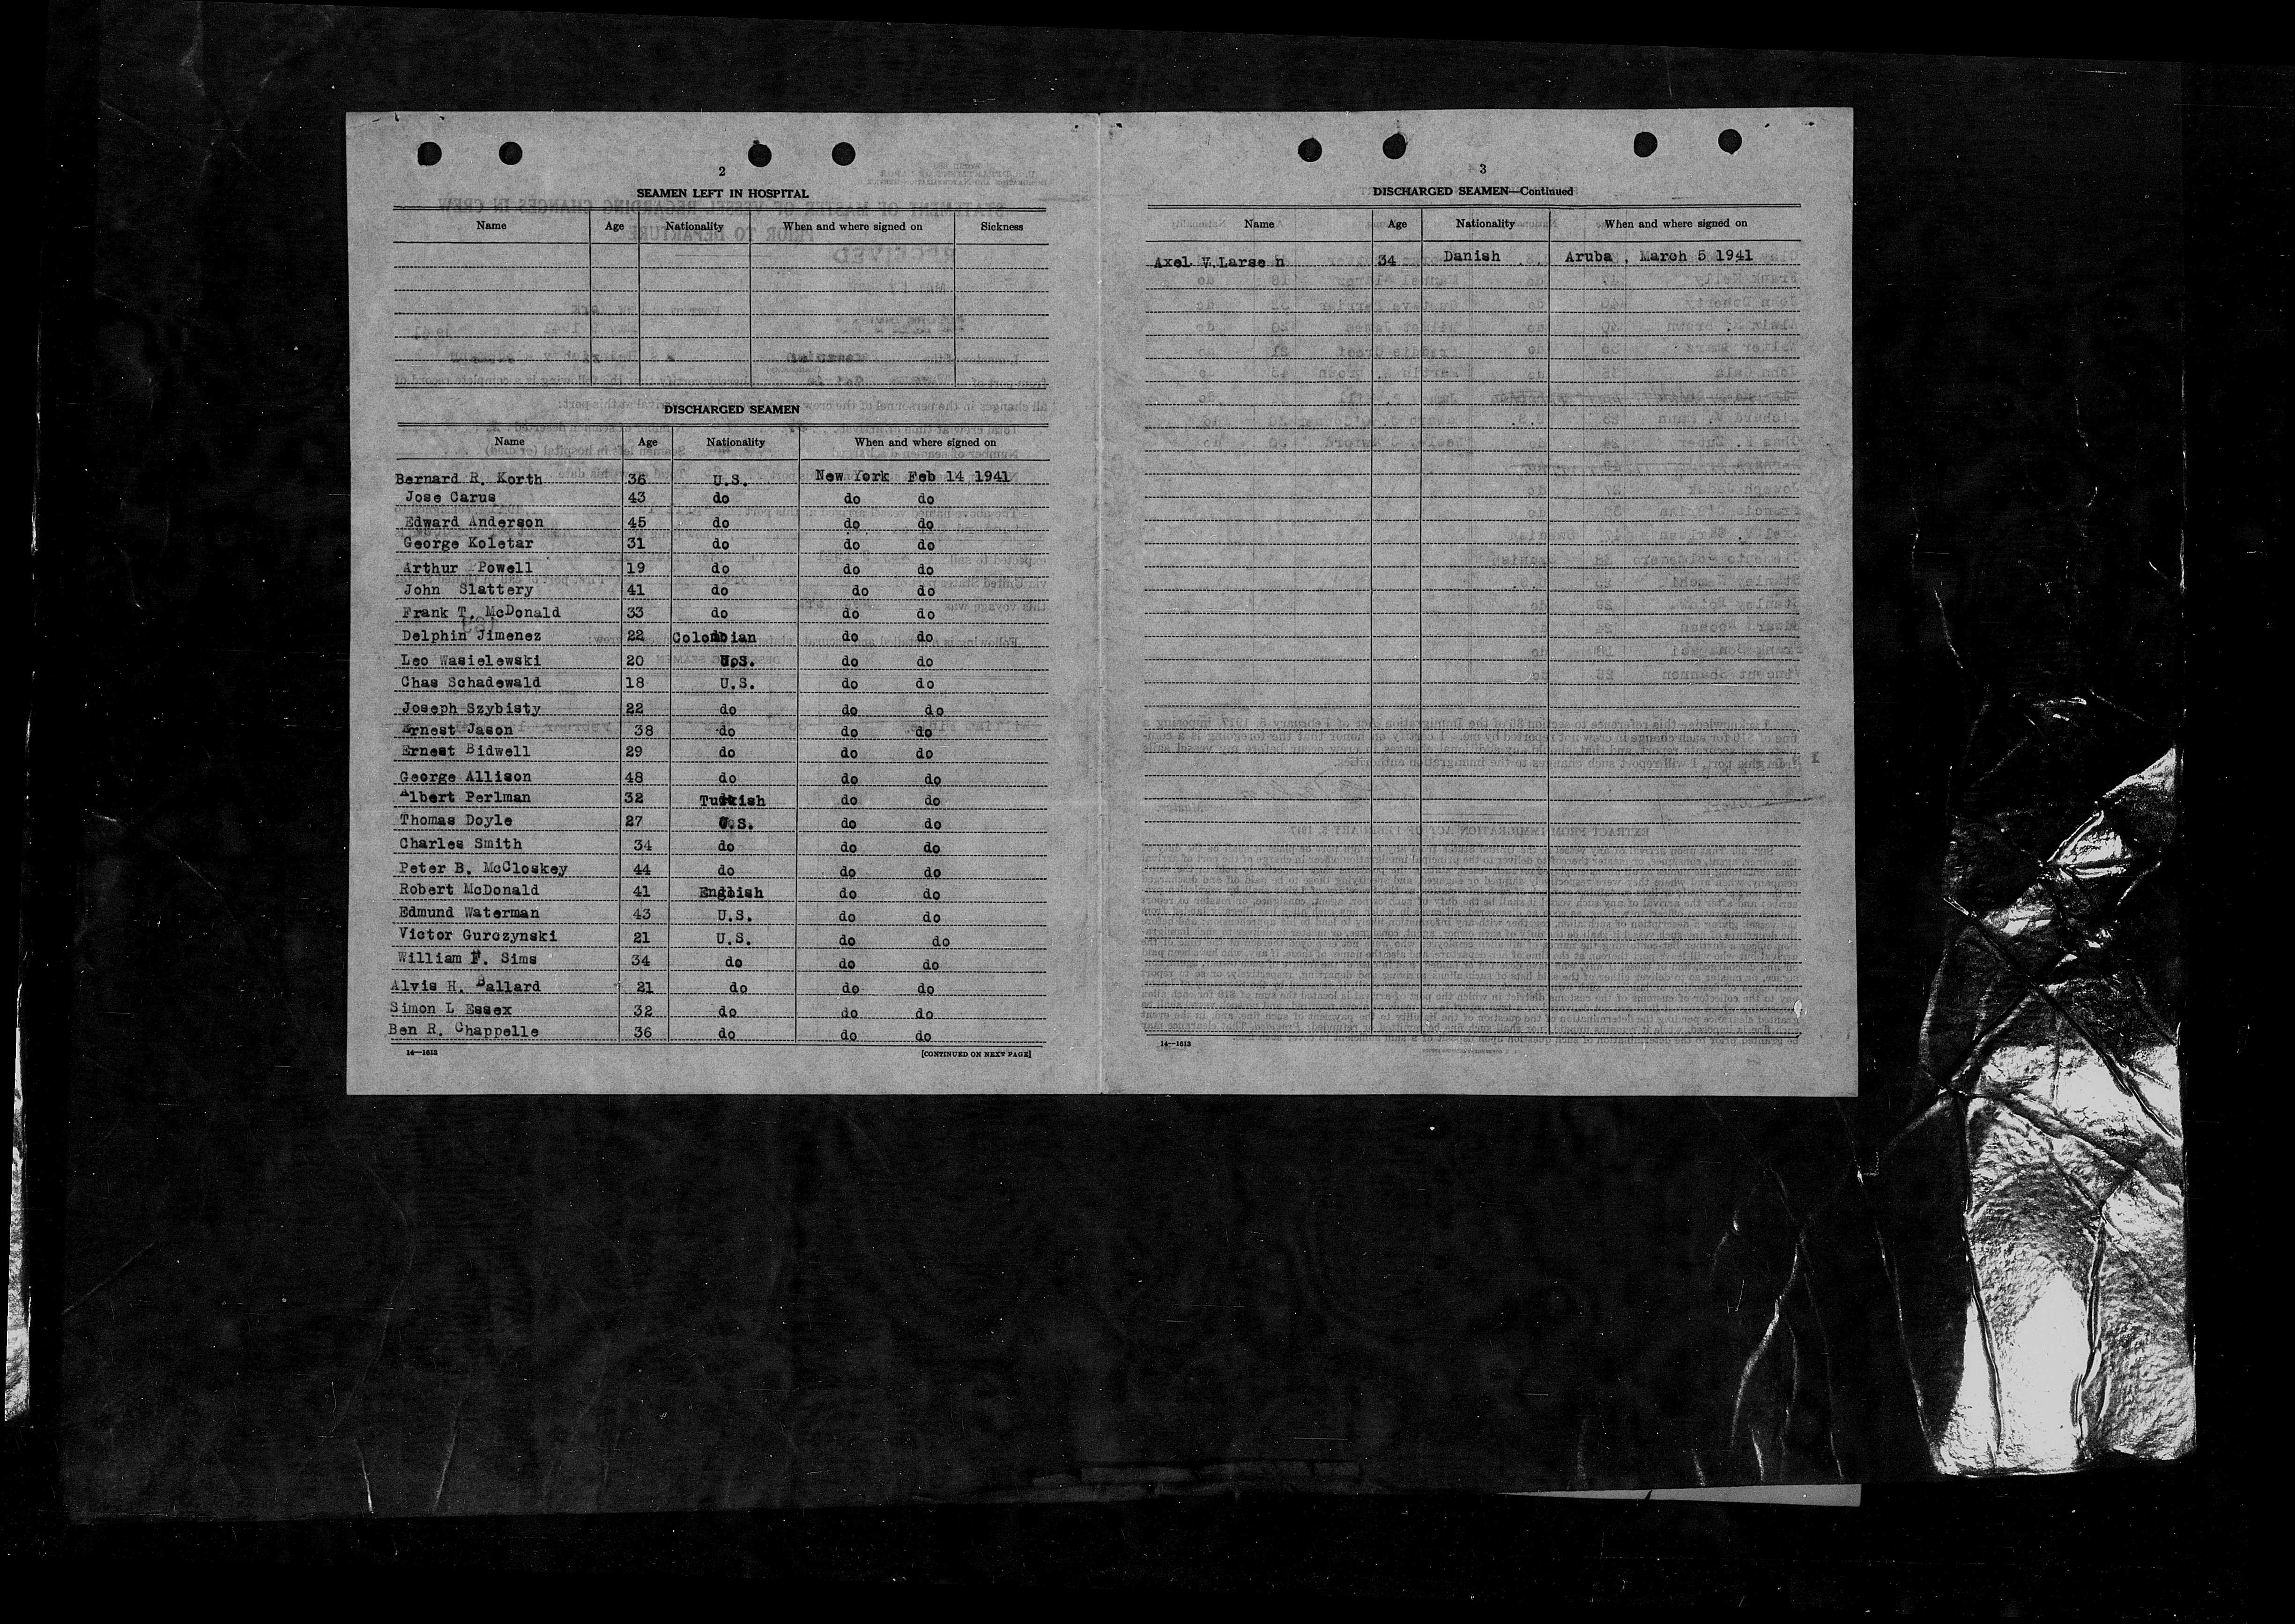 2
SEAMEN LEFT IN HOSPITAL
Name Age Nationality When and where signed on Sickness
DISCHARGED SEAMEN
Name Age Nationality When and where signed on
Bernard R. Korth 36 U.S. New York Feb 14 1941
Jose Carus 43 do do do
Edward Anderson 45 do do do
George Koletar 31 do do do
Arthur Powell 19 do do do
John Slattery 41 do do do
Frank T. McDonald 33 do do do
Delphin Jimenez 22 Colombian do do
Leo Wasielewski 20 U.S. do do
Chas Schadewald 18 U.S. do do
Joseph Szybisty 22 do do do
Ernest Jason 38 do do do
Ernest Bidwell 29 do do do
George Allison 48 do do do
Albert Perlman 32 Turkish do do
Thomas Doyle 27 U.S. do do
Charles Smith 34 do do do
Peter B. McCloskey 44 do do do
Robert McDonald 41 English do do
Edmund Waterman 43 U.S. do do
Victor Gurczynski 21 U.S. do do
William F. Sims 34 do do do
Alvis H. Ballard 21 do do do
Simon L Essex 32 do do do
Ben R. Chappelle 36 do do do
14—1613 [CONTINUED ON NEXT PAGE]
3
DISCHARGED SEAMEN—Continued
Name Age Nationality When and where signed on
Axel V. Larse n 34 Danish Aruba , March 5 1941
14—1613